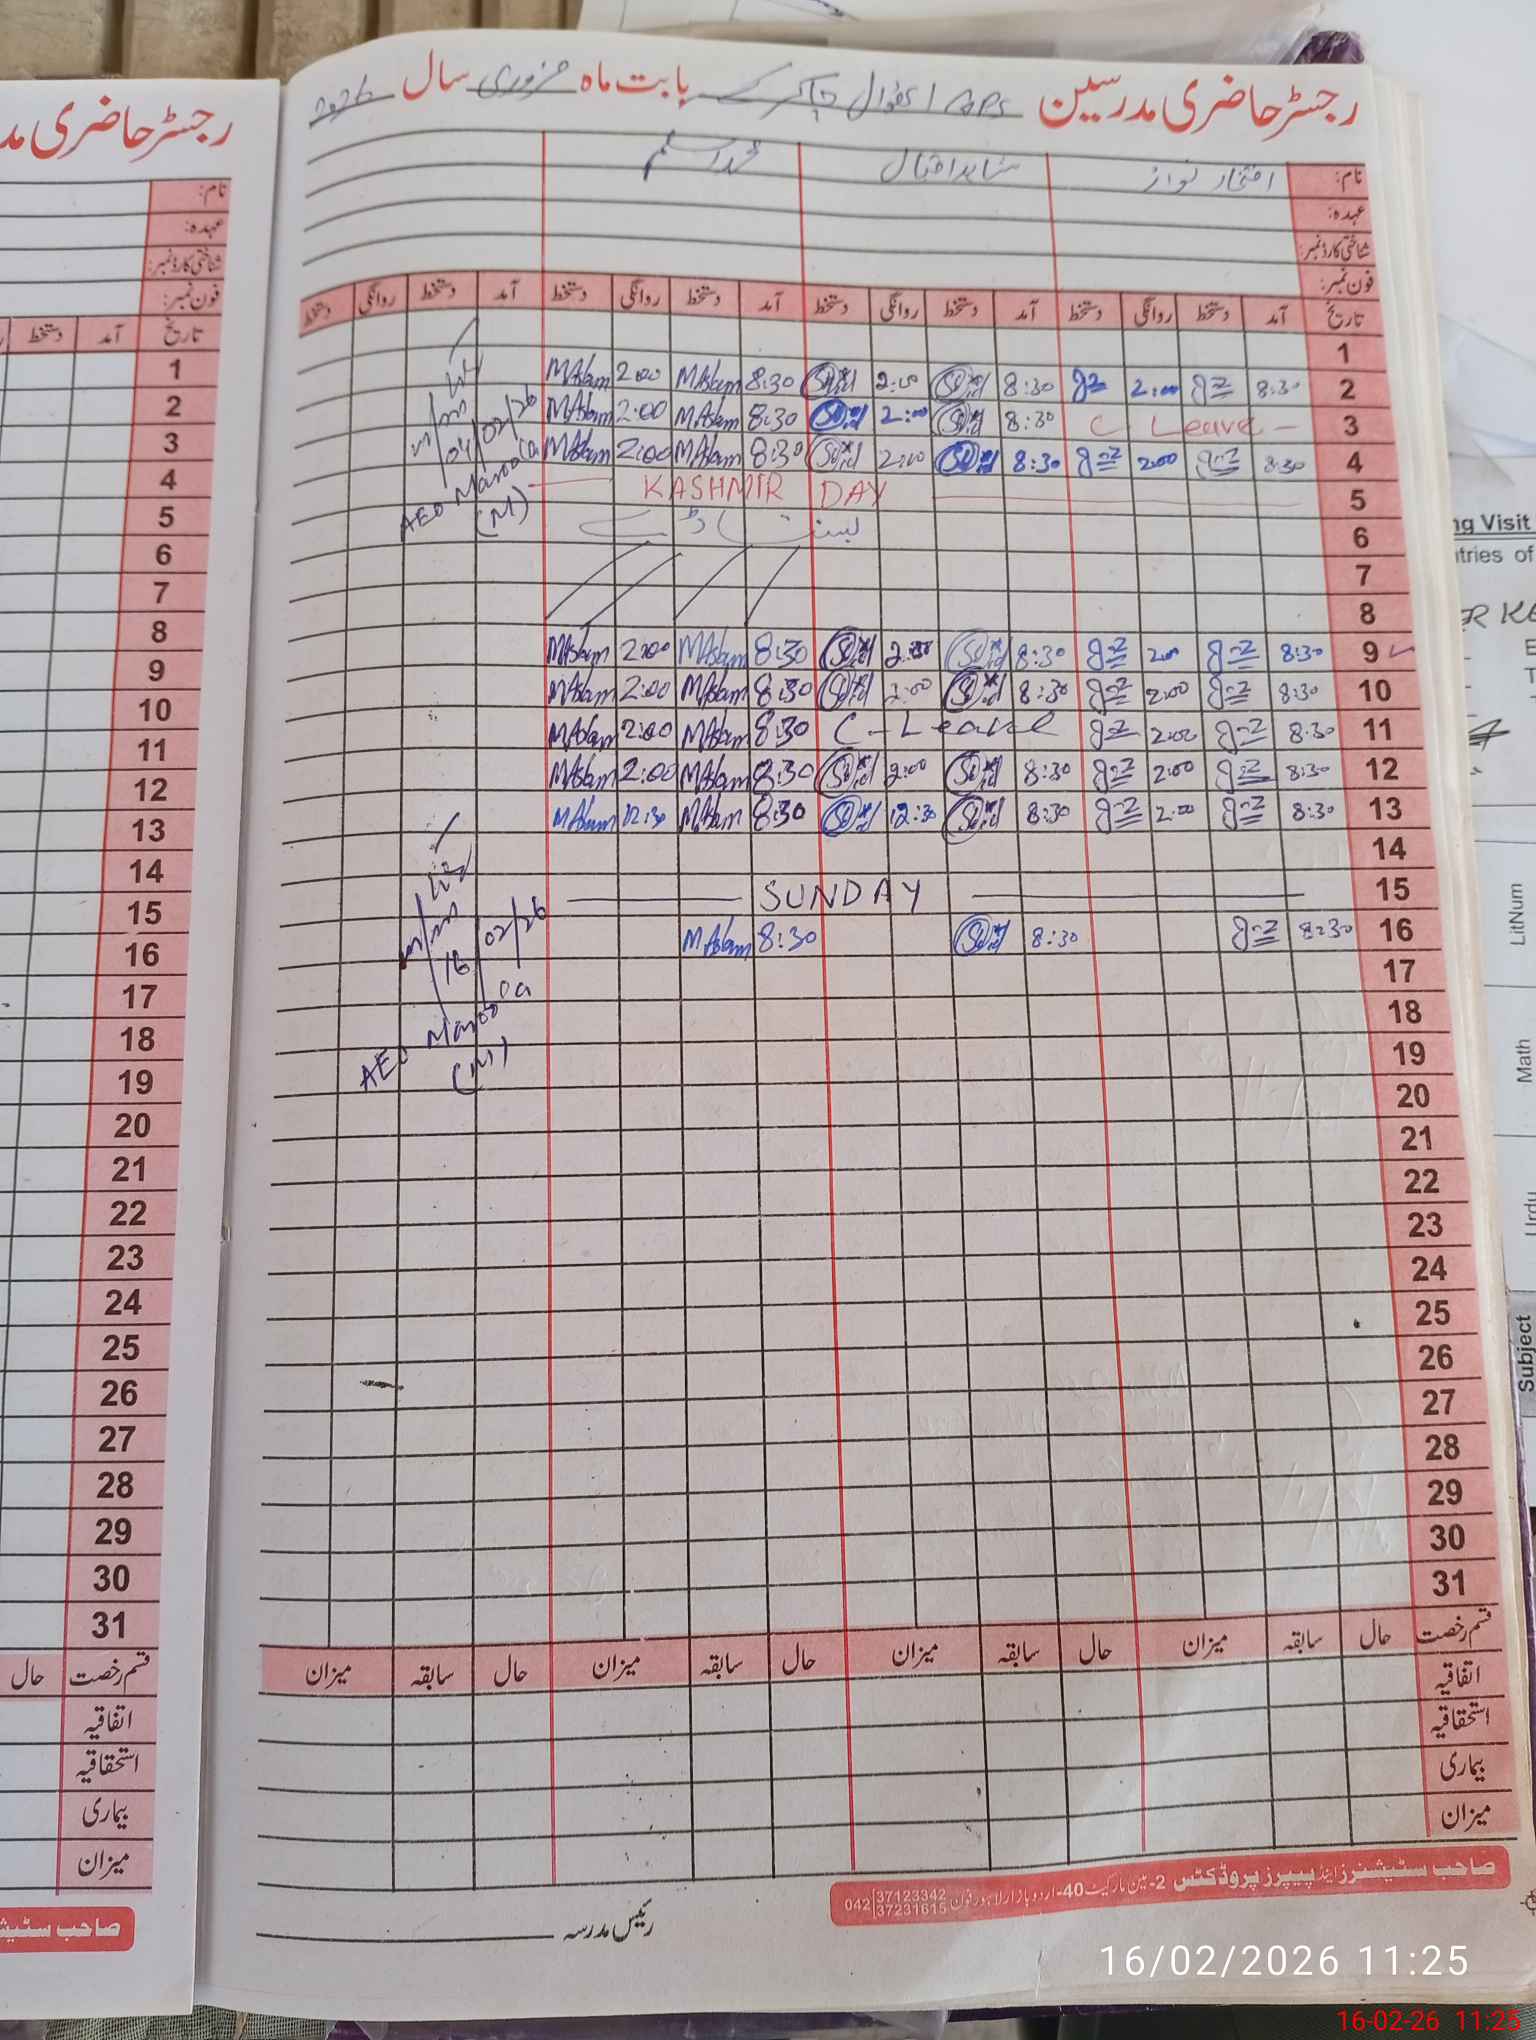 رجسٹر حاضری مدرسین GPS بابت ماہ فروری سال 2026
نام: افتخار نواز شاہد اقبال محمد اسلم
عہدہ:
شناختی کارڈ نمبر:
فون نمبر:
تاریخ آمد دستخط روانگی دستخط آمد دستخط روانگی دستخط آمد دستخط روانگی دستخط آمد دستخط روانگی دستخط
1
MAslam 2:00 MAslam 8:30 2:00 8:30 2:00 8:30 2
MAslam 2:00 MAslam 8:30 2:00 8:30 C Leave - 3
MAslam 2:00 MAslam 8:30 2:00 8:30 2:00 8:30 4
KASHMIR DAY 5
6
7
8
MAslam 2:00 MAslam 8:30 2:00 8:30 2:00 8:30 9
MAslam 2:00 MAslam 8:30 2:00 8:30 2:00 8:30 10
MAslam 2:00 MAslam 8:30 C - Leave 2:00 8:30 11
MAslam 2:00 MAslam 8:30 2:00 8:30 2:00 8:30 12
MAslam 12:30 MAslam 8:30 12:30 8:30 2:00 8:30 13
14
SUNDAY 15
MAslam 8:30 8:30 8:30 16
17
18
19
20
21
22
23
24
25
26
27
28
29
30
31
04/02/26
AEO
(M)
16/02/26
AEO
(M)
قسم رخصت حال سابقہ میزان حال سابقہ میزان حال سابقہ میزان حال سابقہ میزان
اتفاقیہ
استحقاقیہ
بیماری
میزان
صاحب سٹیشنرز اینڈ پیپرز پروڈکٹس 2-مین مارکیٹ 40-اردو بازار لاہور فون 042 37123342 37231615
رئیس مدرسہ
رجسٹر حاضری مد
نام:
عہدہ:
شناختی کارڈ نمبر:
فون نمبر:
تاریخ آمد دستخط
1
2
3
4
5
6
7
8
9
10
11
12
13
14
15
16
17
18
19
20
21
22
23
24
25
26
27
28
29
30
31
قسم رخصت حال
اتفاقیہ
استحقاقیہ
بیماری
میزان
صاحب سٹیشنر
ng Visit
ntries of
LitNum
Math
Urdu
Subject
16/02/2026 11:25
16-02-26 11:25